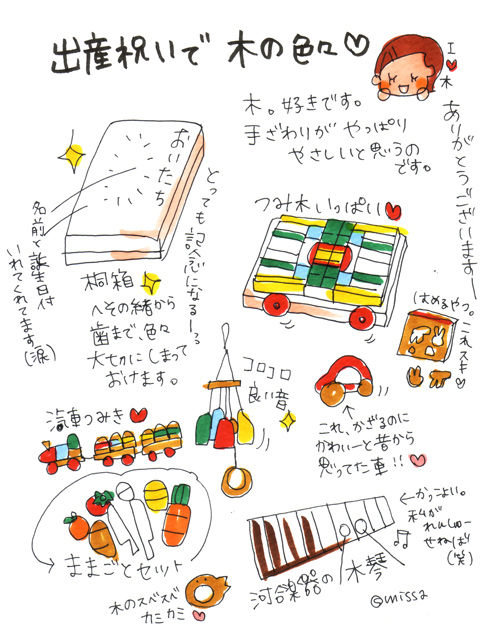 出産祝いで 木の色々♡
I♥木
ありがとうございますー
木。好きです。
手ざわりが やっぱり
やさしいと思うの
です。
おいたち
とっても記念になるー。
名前と誕生日付
いれてくれてます
(涙)
桐箱
へその緒から
歯まで、色々
大切にしまって
おけます。
つみ木いっぱい♥
(はめるやつ。
これスキ♥
コロコロ
良い音
これ、かざるのに
かわいーと昔から
思ってた車!!♥
汽車つみき♥
ままごとセット
木のスベスベ
カミカミ♥
かっこよい。
私が
れんしゅー
せねば
(笑)
河合楽器の 木琴
©missa